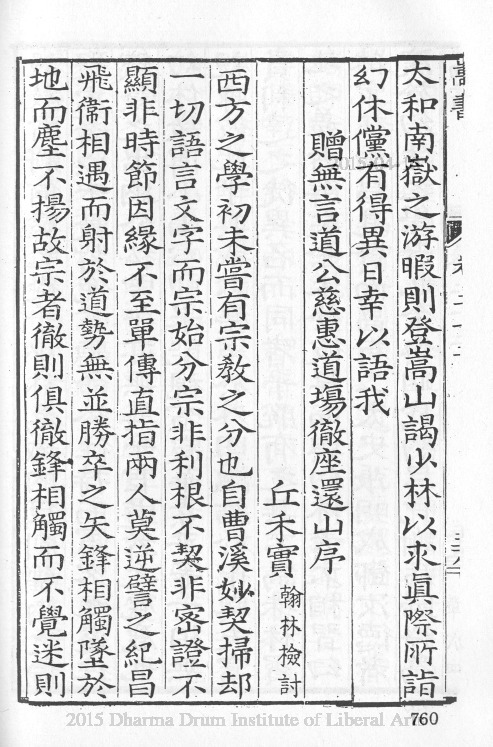 太和南嶽之游暇則登嵩山謁少林以求眞際所詣
幻休儻有得異日幸以語我
贈無言道公慈惠道場徹座還山序
丘禾實翰林檢討
西方之學初未嘗有宗教之分也自曹溪妙契掃却
一切語言文字而宗始分宗非利根不契非密證不
顯非時節因緣不至單傳直指兩人莫逆譬之紀昌
飛衞相遇而射於道勢無並勝卒之矢鋒相觸墜於
地而塵不揚故宗者徹則俱徹鋒相觸而不覺迷則
760
2015 Dharma Drum Institute of Liberal Arts